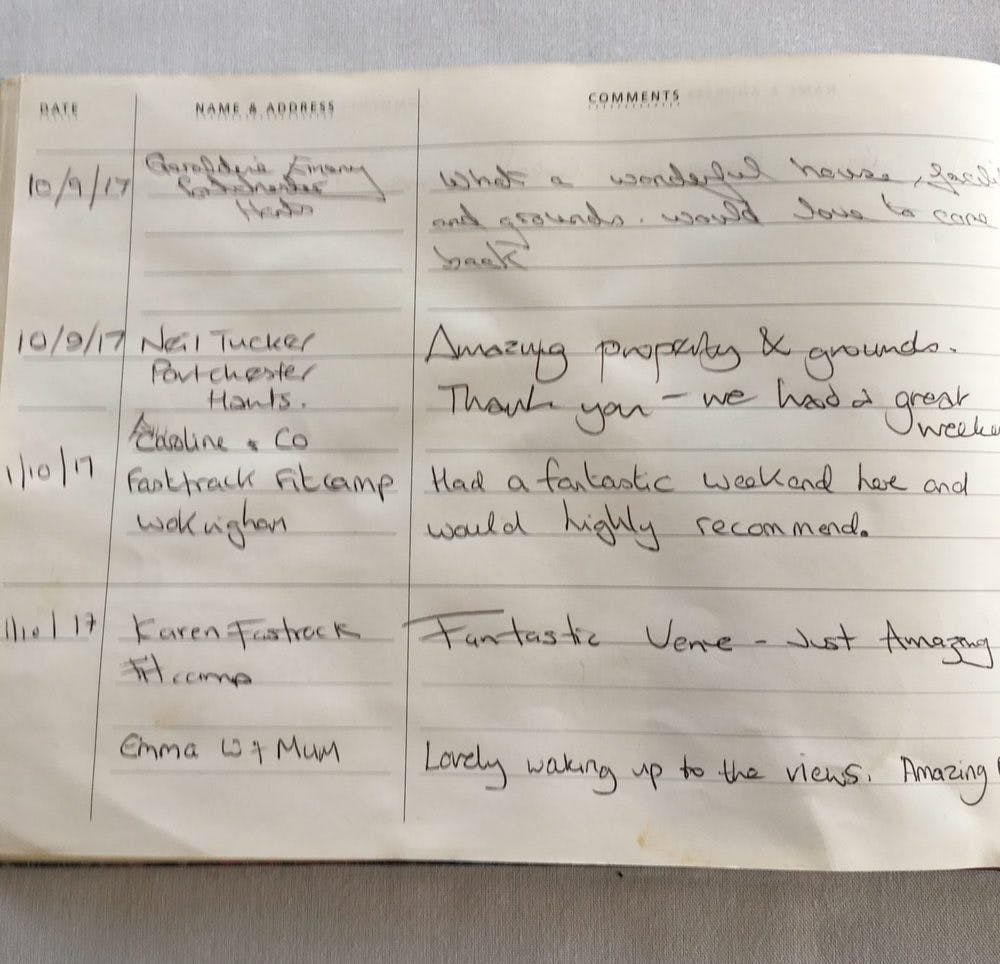 DATE NAME & ADDRESS COMMENTS
10/9/17 Geraldine Emery What a wonderful house, facili
Hants and grounds. would love to come
back
10/9/17 Neil Tucker Amazing property & grounds.
Portchester Thank you - we had a great
Hants. weeke
Caroline & Co
1/10/17 Fasttrack Fitcamp Had a fantastic weekend here and
Wokingham would highly recommend.
1/10/17 Karen Fastrack Fantastic Venue - Just Amazing
Fitcamp
Emma W & Mum Lovely waking up to the views. Amazing